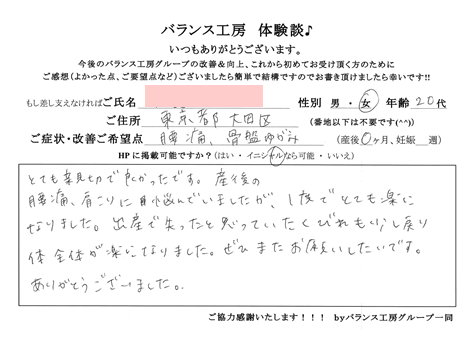 バランス工房 体験談♪
いつもありがとうございます。
今後のバランス工房グループの改善&向上、これから初めてお受け頂く方のために
ご感想(よかった点、ご要望点など)ございましたら簡単で結構ですのでお書き頂けましたら幸いです!!
もし差し支えなければご氏名 性別 男・女 年齢 20代
ご住所 東京都大田区 (番地以下は不要です(^^))
ご症状・改善ご希望点 腰痛、骨盤ゆがみ (産後0ヶ月、妊娠 週)
HPに掲載可能ですか?(はい・イニシャルなら可能・いいえ)
とても親切で良かったです。産後の
腰痛、肩こりに悩んでいましたが、1度でとても楽に
なりました。出産で失ったと思っていたくびれも少し戻り
体全体が楽になりました。ぜひまたお願いしたいです。
ありがとうございました。
ご協力感謝いたします!!! byバランス工房グループ一同